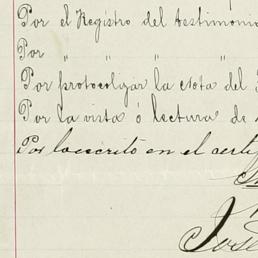 Por el Registro del testimonio
Por " " " "
Por protocolizar la nota del
Por la vista ó lectura de
Por lo escrito en el
José